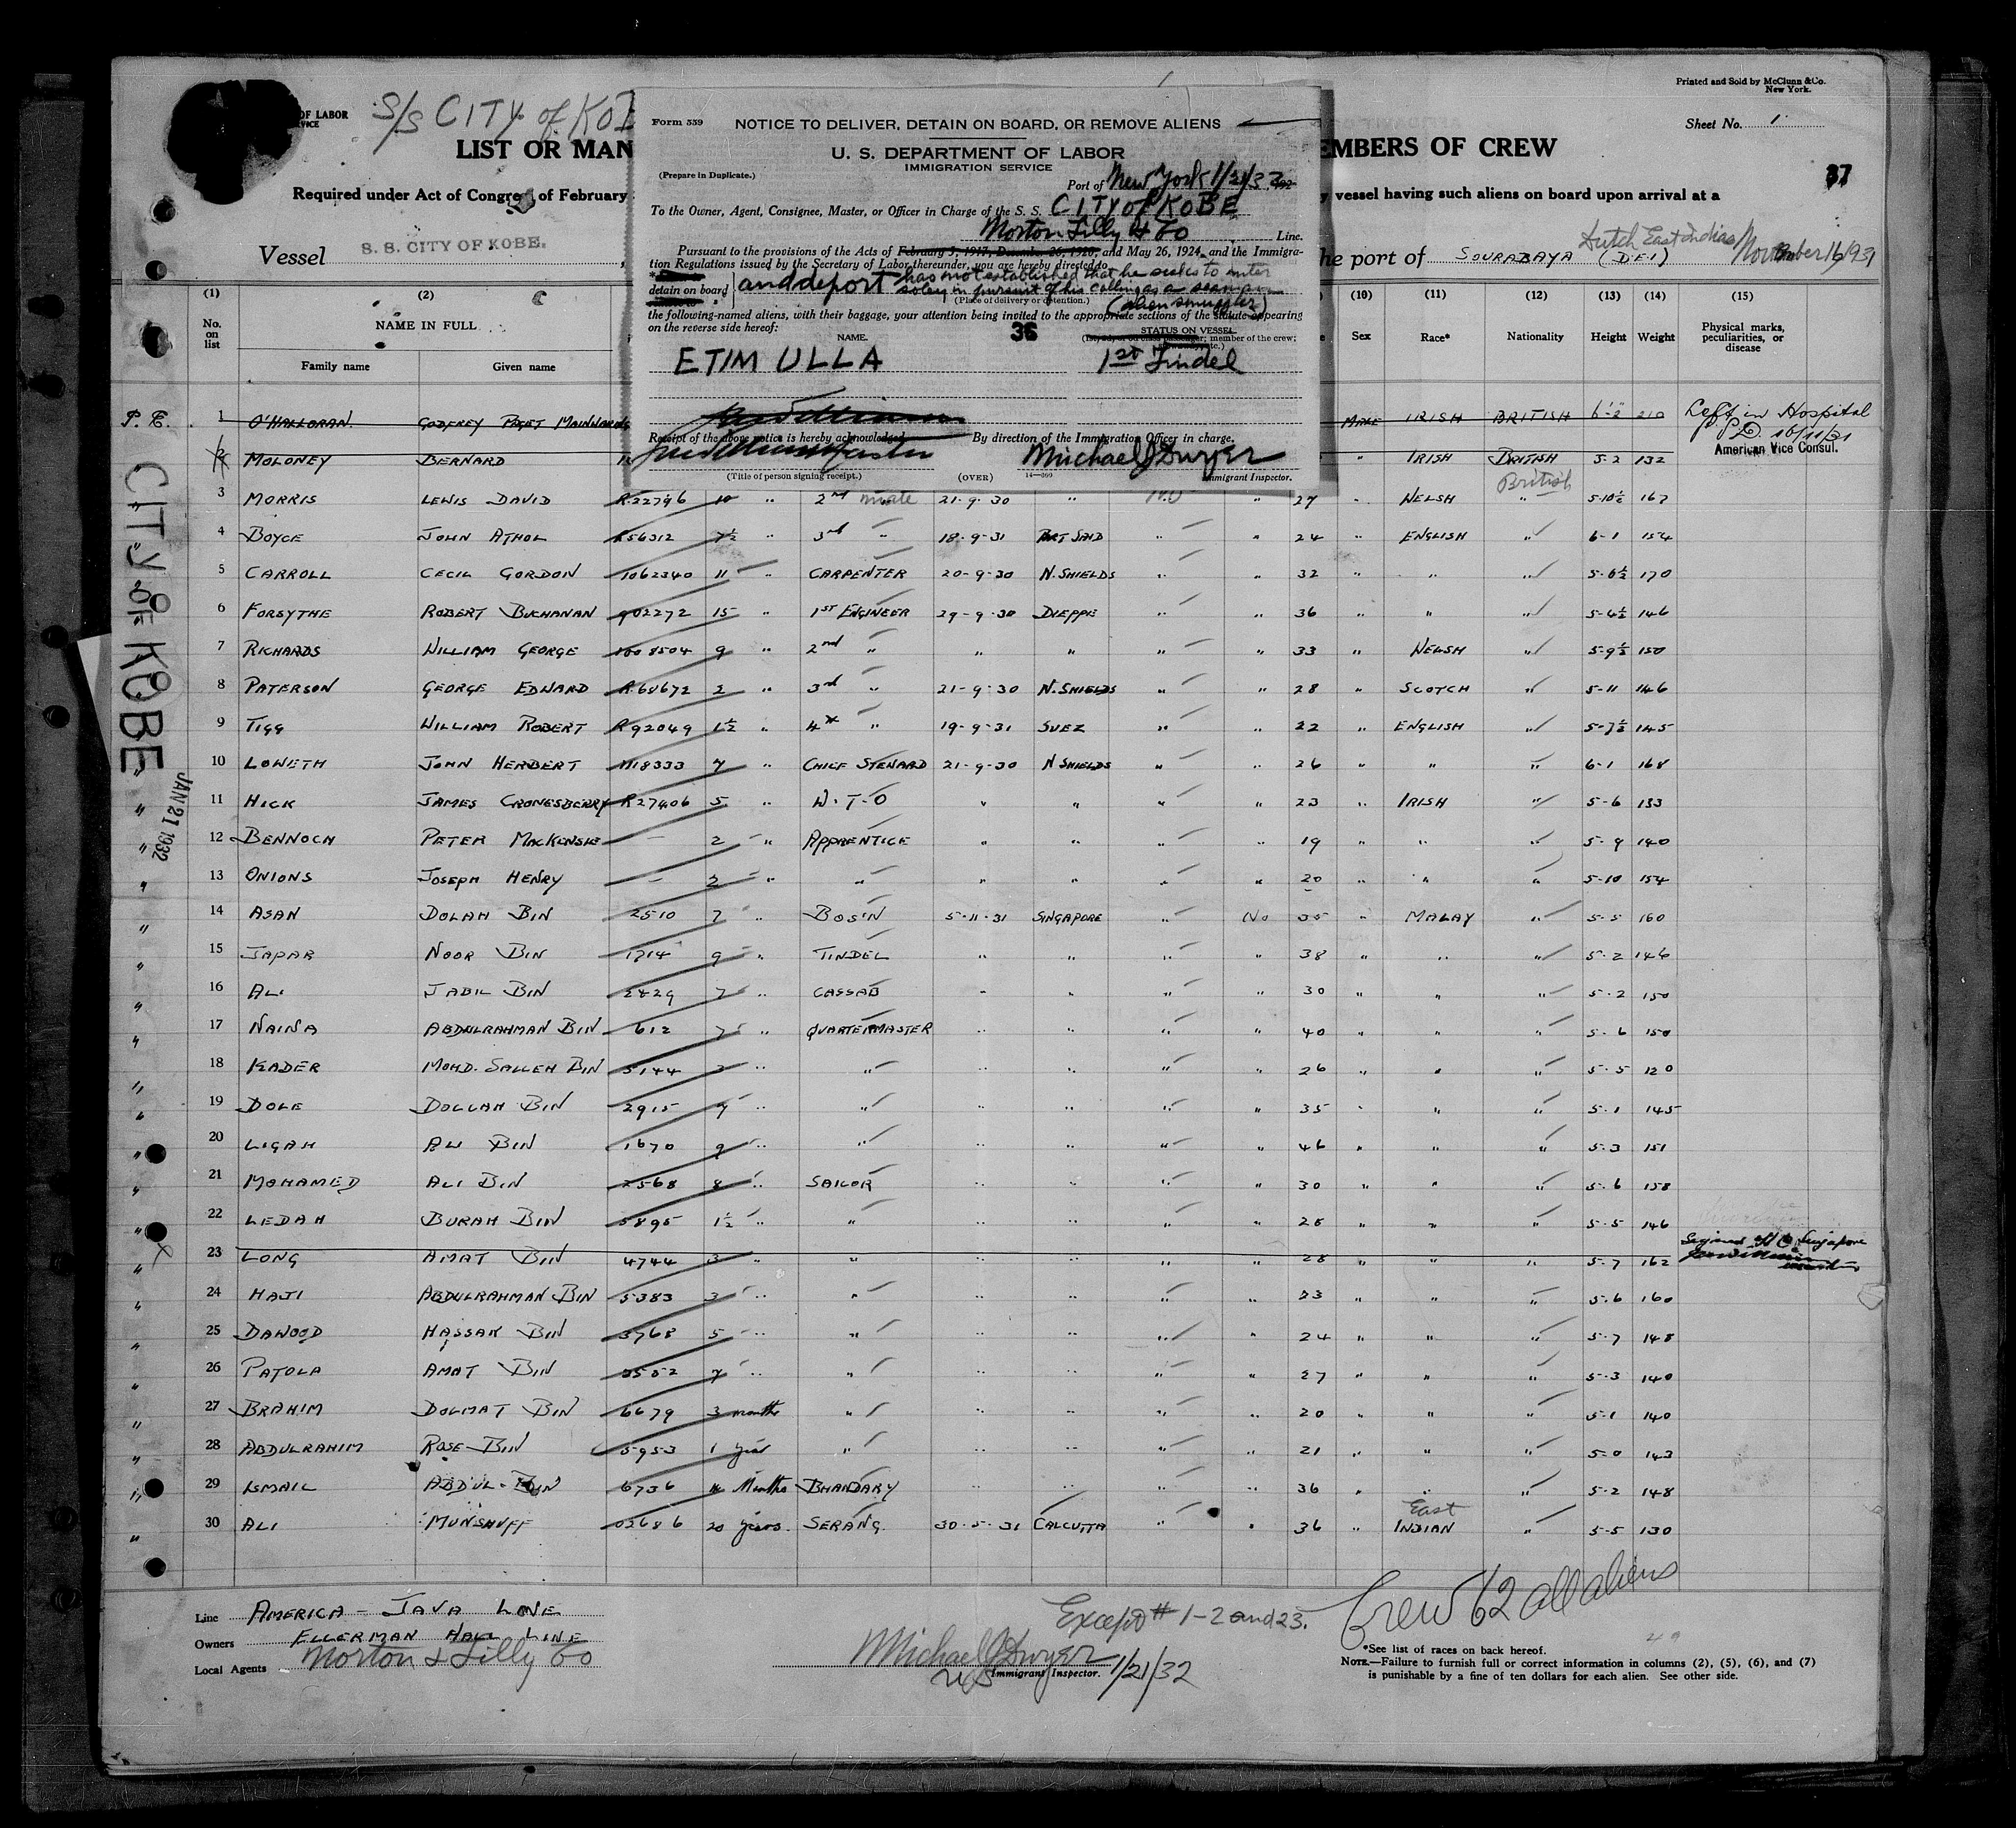 Printed and Sold by McClunn & Co.
New York.
OF LABOR
S/S CITY of KO
Sheet No. 1
LIST OR MAN
EMBERS OF CREW
37
Required under Act of Congress of February
y vessel having such aliens on board upon arrival at a
Vessel S. S. CITY OF KOBE.
the port of SOURABAYA (D.E.I) Dutch East Indies November 16/1931
Form 559 NOTICE TO DELIVER, DETAIN ON BOARD, OR REMOVE ALIENS
U. S. DEPARTMENT OF LABOR
IMMIGRATION SERVICE
(Prepare in Duplicate.)
Port of New York 1/21/32
To the Owner, Agent, Consignee, Master, or Officer in Charge of the S. S. CITY of KOBE
Norton Lilly & Co Line.
Pursuant to the provisions of the Acts of February 5, 1917, December 26, 1920, and May 26, 1924, and the Immigra-
tion Regulations issued by the Secretary of Labor thereunder, you are hereby directed to
has not established that he seeks to enter
detain on board and deport solely in pursuit of his calling as a seaman
(Place of delivery or detention.) (alien smuggler)
the following-named aliens, with their baggage, your attention being invited to the appropriate sections of the statute appearing
on the reverse side hereof:
NAME. 36 STATUS ON VESSEL
member of the crew;
ETIM ULLA 1st Tindel
Receipt of the above notice is hereby acknowledged. By direction of the Immigration Officer in charge.
Master Michael J Dwyer
(Title of person signing receipt.) (OVER) 14—600 Immigrant Inspector.
(1) (2) (10) (11) (12) (13) (14) (15)
No. on list NAME IN FULL Sex Race* Nationality Height Weight Physical marks, peculiarities, or disease
Family name Given name
P. E. 1 O'HALLORAN GODFREY PAGET MAINWARING MALE IRISH BRITISH 6-2 210 Left in Hospital
16/11/31
American Vice Consul.
2 MOLONEY BERNARD " IRISH BRITISH 5-2 132
British
3 MORRIS LEWIS DAVID R22796 10 " 2nd mate 21-9-30 " " 27 " WELSH " 5-10½ 167
4 BOYCE JOHN ATHOL R56312 7½ " 3rd " 18-9-31 PORT SAID " " 24 " ENGLISH " 6-1 154
5 CARROLL CECIL GORDON 1062340 11 " CARPENTER 20-9-30 N. SHIELDS " " 32 " " " 5-6½ 170
6 FORSYTHE ROBERT BUCHANAN 902272 15 " 1ST ENGINEER 29-9-30 DIEPPE " " 36 " " " 5-6½ 146
7 RICHARDS WILLIAM GEORGE 1008504 9 " 2nd " " " " " 33 " WELSH " 5-9½ 150
8 PATERSON GEORGE EDWARD R.60672 2 " 3rd " 21-9-30 N. SHIELDS " " 28 " SCOTCH " 5-11 146
9 TIGG WILLIAM ROBERT R92049 1½ " 4th " 19-9-31 SUEZ " " 22 " ENGLISH " 5-7½ 145
10 LOWETH JOHN HERBERT 1118333 7 " CHIEF STEWARD 21-9-30 N SHIELDS " " 26 " " " 6-1 168
11 HICK JAMES CRONESBERRY R27406 5 " W.T.O " " " " 23 " IRISH " 5-6 133
12 BENNOCH PETER MACKENSIE — 2 " APPRENTICE " " " " 19 " " " 5-9 140
13 ONIONS JOSEPH HENRY — 2 " " " " " " 20 " " " 5-10 154
14 ASAN DOLAH BIN 2510 7 " BOSIN 5-11-31 SINGAPORE " No 35 " MALAY " 5-5 160
15 JAPAR NOOR BIN 1714 9 " TINDEL " " " " 38 " " " 5-2 146
16 ALI JABIL BIN 2829 7 " CASSAB " " " " 30 " " " 5-2 150
17 NAINA ABDULRAHMAN BIN 612 7 " QUARTERMASTER " " " " 40 " " " 5-6 150
18 KADER MOHD. SALLEH BIN 5144 " " " " " " 26 " " " 5-5 120
19 DOLE DOLLAH BIN 2915 7 " " " " " " 35 " " " 5-1 145
20 LIGAH ALI BIN 1670 9 " " " " " " 46 " " " 5-3 151
21 MOHAMED ALI BIN 2568 8 " SAILOR " " " " 30 " " " 5-6 158
22 LEDAH BURAH BIN 5895 1½ " " " " " " 25 " " " 5-5 146
23 LONG AMAT BIN 4744 3 " " " " " " 28 " " " 5-7 162 Signed off @ Singapore
24 HAJI ABDULRAHMAN BIN 5383 3 " " " " " " 23 " " " 5-6 160
25 DAWOOD HASSAN BIN 3768 5 " " " " " " 24 " " " 5-7 148
26 PATOLA AMAT BIN 3552 7 " " " " " " 27 " " " 5-3 140
27 BRAHIM DOLMAT BIN 6679 3 months " " " " " 20 " " " 5-1 140
28 ABDULRAHIM ROSE BIN 5953 1 year " " " " " 21 " " " 5-0 143
29 ISMAIL ABDUL BIN 6736 Months BHANDARY " " " " 36 " " " 5-2 148
30 ALI MUNSHUFF 02686 20 years. SERANG. 30-5-31 CALCUTTA " " 36 " East INDIAN " 5-5 130
CITY OF KOBE
JAN 21 1932
Line AMERICA - JAVA LINE
Owners ELLERMAN HALL LINE
Local Agents Norton & Lilly Co
Except # 1-2 and 23.
Crew 62 all aliens
Michael J Dwyer
Immigrant Inspector. 1/21/32
*See list of races on back hereof.
NOTE.—Failure to furnish full or correct information in columns (2), (5), (6), and (7)
is punishable by a fine of ten dollars for each alien. See other side.